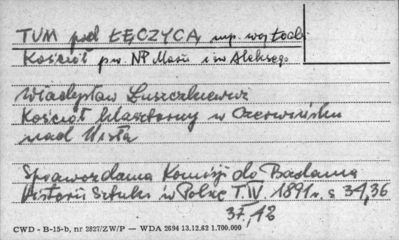 TUM pod ŁĘCZYCĄ, mp. woj Łodz.
Kościół p.w. NP Marii i św Aleksego
Władysław Łuszczkiewicz
Kościół klasztorny w Czerwińsku
nad Wisłą
Sprawozdania Komisji do Badania
Historii Sztuki w Polsce T. IV 1891 r. s 34,36
37, 42
CWD - B-15-b, nr 2827/ZW/P — WDA 2694 13.12.62 1.700.000